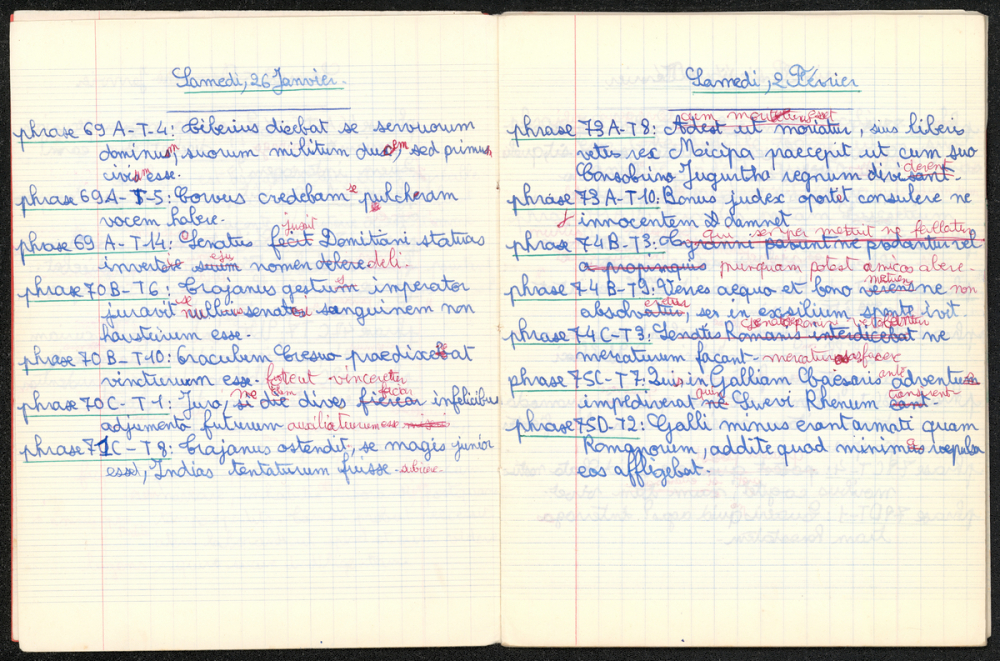 Samedi, 26 Janvier.
phrase 69 A-T-4: Tiberius dicebat se servuorum
dominum, suorum militum ducem, sed primum
civem esse.
phrase 69A-T-5: Corvus credebam se pulcheram
vocem habere.
jussit
phrase 69 A-T-14: Senatus fecit Domitiani statuas
ejus
invertere suum nomen delere deli.
phrase 70B-T6: Trajanus gestum imperator
se
juravit nullius senatus sanguinem non
hausturum esse.
phrase 70 B-T-10: Oraculum Cresuo praedixebat
vincturum esse. foteut vinceretur
me
phrase 70C-T-1: Juro, si die dives infelicibus
adjumento futurum auxiliaturum esse
phrase 71C-T8: Trajanus ostendit, se magis junior
esset, Indias tentaturum fuisse. abiere.
Samedi, 2 Février
cum
phrase 73A-T8: Adest ut moriatur, suis liberis
vetus rex Micipa paecepit ut cum suo
derent
Consobrino Jugurtha regnum divisant.
phrase 73A-T10: Bonus judex oportet consulere ne
innocentem damnet
qui semper metuit ne fallatur
phrase 74B-T3: Tyranni possunt ne prodantur vel
a propinquis nunquam potest amicos abere.
metuens
phrase 74B-T9: Verres aequo et bono verens ne non
absolvetur, ser in exsilium sponte ivit.
phrase 74C-T3: Senatus Romanis interdicebat ne
mercaturum facant.
ante
phrase 75C-T7: Quis in Galliam Caesaris adventum
quin
impediverat ne Suevi Rhenum
phrase 75D-T2: Galli minus erant armati quam
Romanorum, addite quod minimas repulsa
eos affligebat.